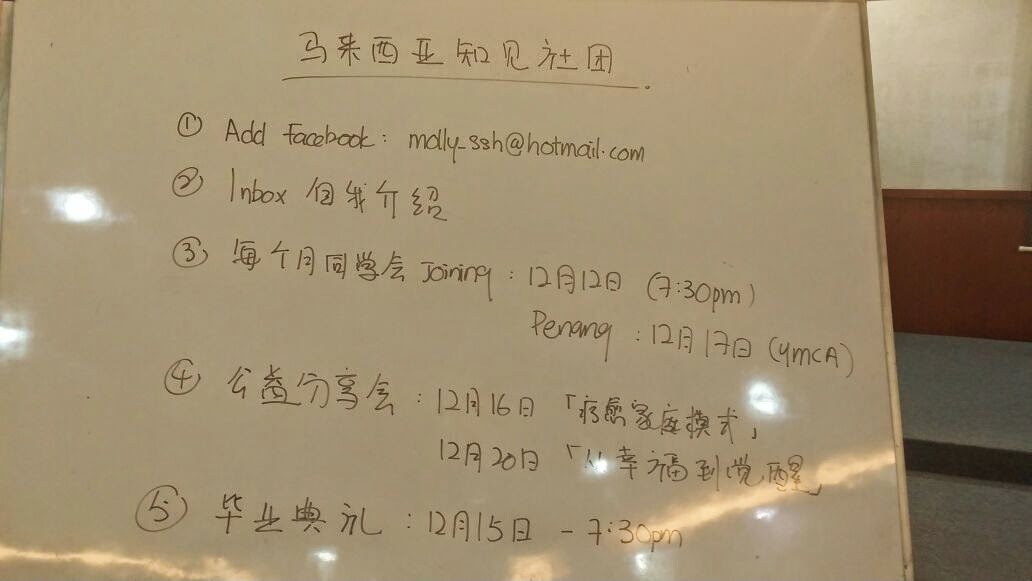 马来西亚知见社团
① Add Facebook : molly_ssh@hotmail.com
② Inbox 自我介绍
③ 每个月同学会 Joining : 12月12日 (7:30pm)
Penang : 12月17日 (YMCA)
④ 公益分享会 : 12月16日 「疗愈家庭模式」
12月20日 「从幸福到觉醒」
⑤ 毕业典礼 : 12月15日 - 7:30pm